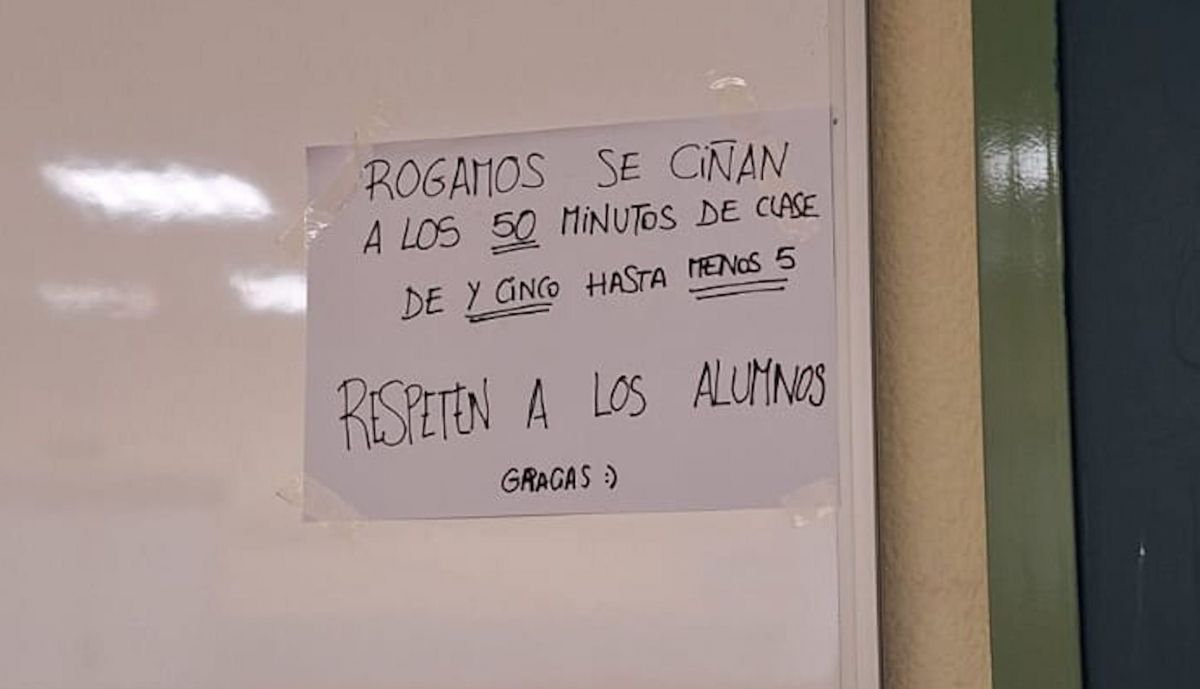 ROGAMOS SE CIÑAN
A LOS 50 MINUTOS DE CLASE
DE Y CINCO HASTA MENOS 5
RESPETEN A LOS ALUMNOS
GRACAS :)